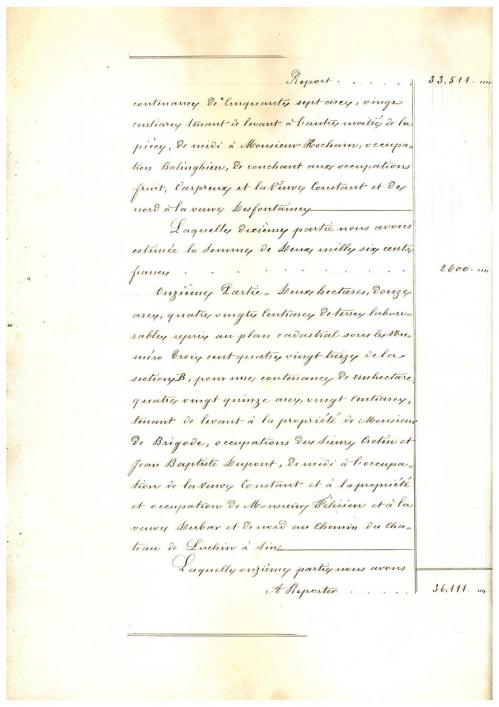 Report . . . . . 33.511 "
contenance de Cinquante sept ares, vingt
centiares tenant de levant à l'autre moitié de la
pièce, de midi à Monsieur Hocham, occupa-
tion Balinghien, de couchant aux occupations
fruit, Carpreux et la Veuve Constant et de
nord à la veuve Desfontaines
Laquelle dixième partie nous avons
estimée la somme de Deux mille six cents
francs . . . . . . . . . . 2600 "
Onzième Partie. Deux hectares, douze
ares, quatre vingts centiares de terres labou-
rables repris au plan cadastral sous le Nu-
méro Trois cent quatre vingt treize de la
section B, pour une contenance de un hectare,
quatre vingt quinze ares, vingt centiares,
tenant de levant à la propriété de Monsieur
De Brigode, occupations des Sieurs Cretin et
Jean Baptiste Dupont, de midi à l'occupa-
tion de la Veuve Constant et à la propriété
et occupation de Monsieur Félicien et à la
veuve Dubar et de nord au Chemin du Cha-
teau de Luchin à Sin
Laquelle onzième partie nous avons
A Reporter . . . . . 36.111 "